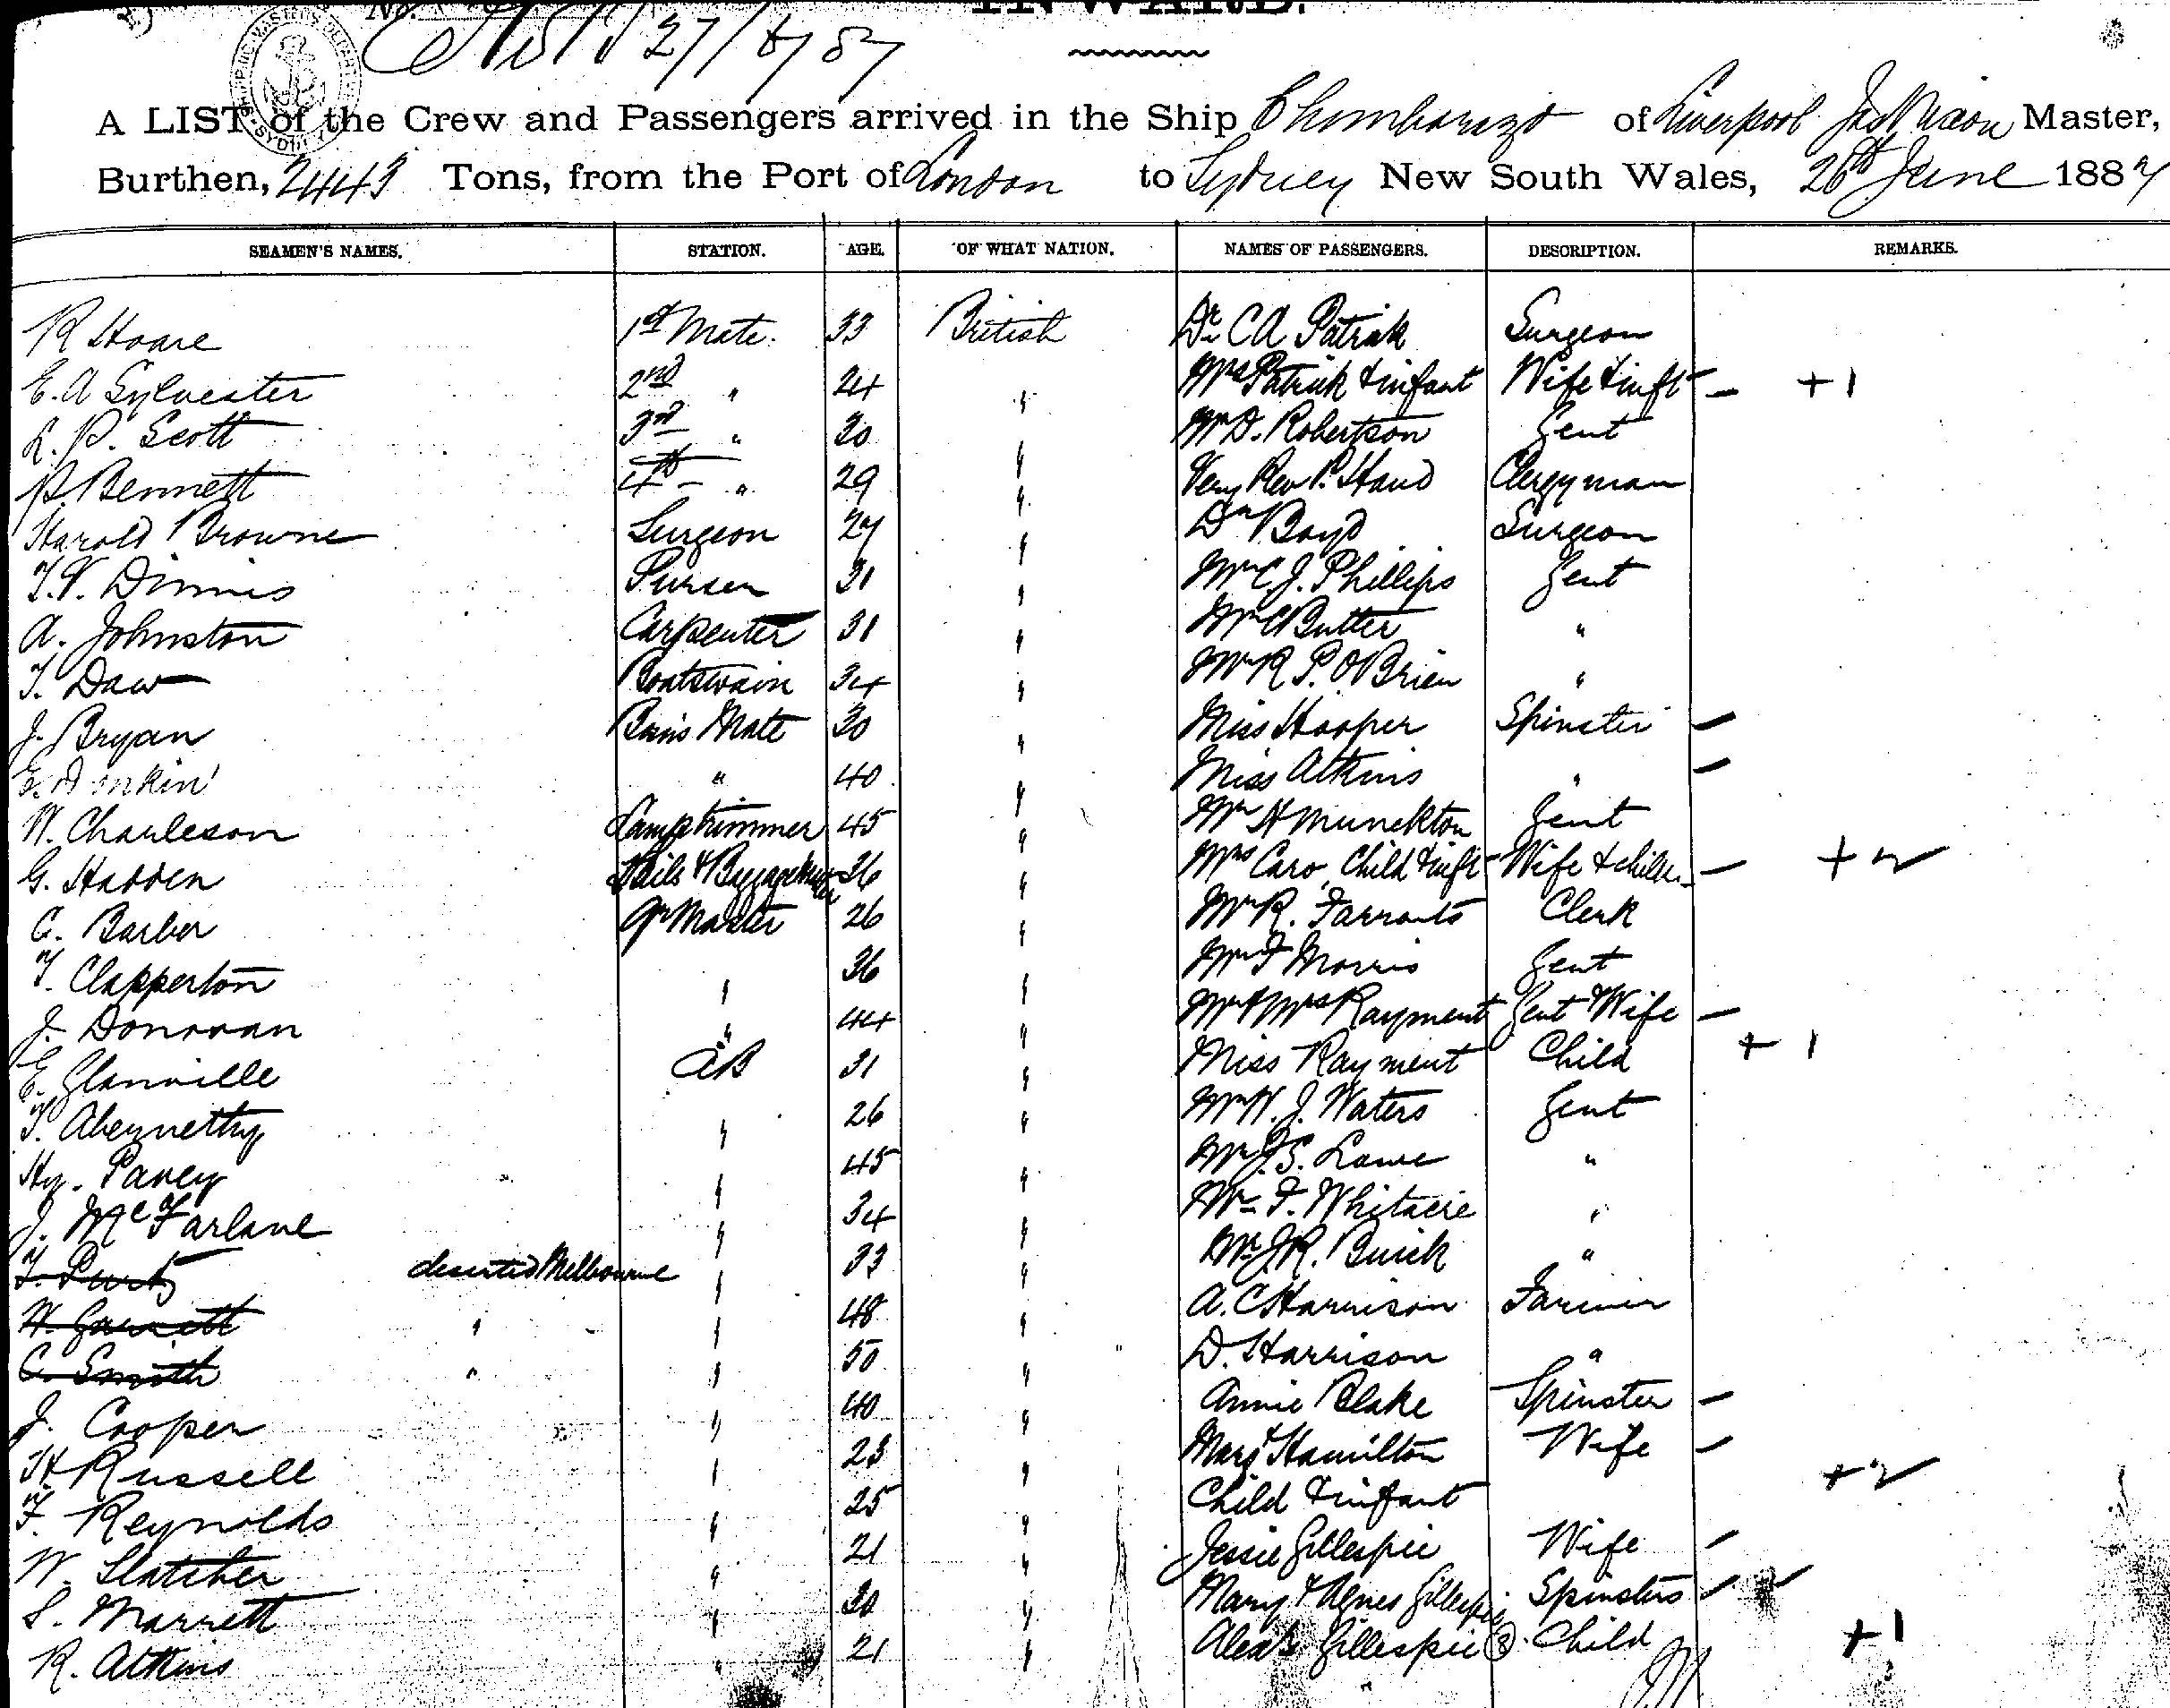 No.
INWARD.
27/6/87
A LIST of the Crew and Passengers arrived in the Ship Chimborazo of Liverpool Master,
Burthen, 2443 Tons, from the Port of London to Sydney New South Wales, 26th June 1887
SEAMEN'S NAMES. STATION. AGE. OF WHAT NATION. NAMES OF PASSENGERS. DESCRIPTION. REMARKS.
R Hoare 1st Mate. 33 British Dr C A Patrick Surgeon
E. A Sylvester 2nd " 24 " Mrs Patrick & infant Wife & inft — +1
L. P. Scott 3rd " 30 " Mr D. Robertson Gent
P. Bennett 4th " 29 " Very Rev P. Hand Clergyman
Harold Browne Surgeon 27 " Dr Boyd Surgeon
Purser 31 " Mr C. J. Phillips Gent
A. Johnston Carpenter 31 " Mr C Butter "
T. Daw Boatswain 34 " Mr R P. O'Brien "
J. Bryan Bsn's Mate 30 " Miss Hooper Spinster —
" 40 " Miss Atkins " —
W. Charleson Lamptrimmer 45 " Mr H Munckton Gent
G. Hadden 36 " Mrs Caro, Child & inft Wife & child — +2
C. Barber Qr Master 26 " Mr R. Farrants Clerk
T. Clapperton " 36 " Mr F Morris Gent
J. Donovan " 44 " Mr & Mrs Rayment Gent & Wife —
E. Glanville AB 31 " Miss Rayment Child +1
T. Abernethy " 26 " Mr W. J. Waters Gent
Hy. Pavey " 45 " Mr J. S. Lowe "
J. McFarlane " 34 " Mr F. Whitacre "
deserted Melbourne " 33 " Mr J R. Buick "
W. Garnett " " 48 " A. C Harrison Farmer
C. Smith " " 50 " D. Harrison "
J. Cooper " 40 " Annie Blake Spinster —
H Russell " 23 " Margt Hamilton Wife —
F. Reynolds " 25 " Child & infant +2
W. Slatcher " 21 " Jessie Gillespie Wife —
S. Marrett " 30 " Mary & Agnes Gillespie Spinsters
R. Atkins " 21 " Gillespie (8) Child +1